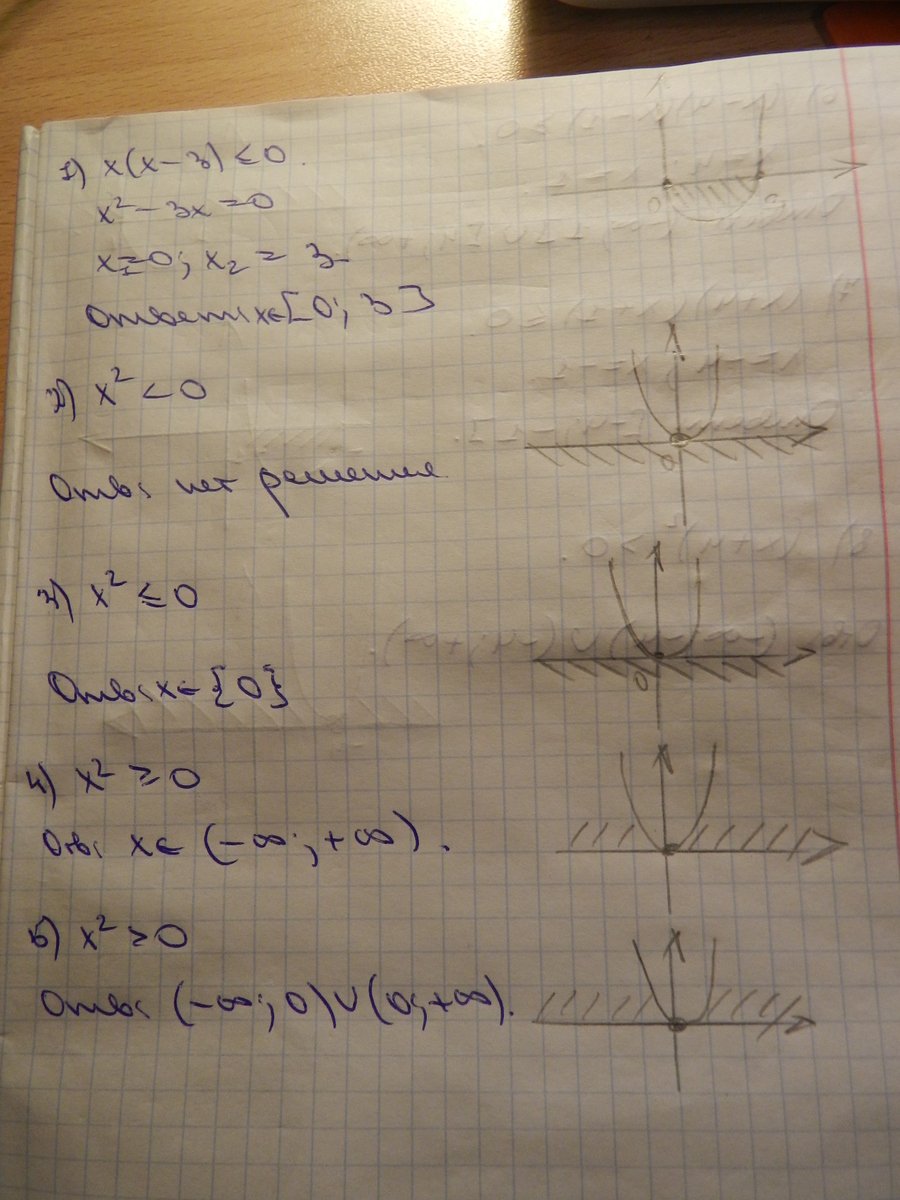 1) x(x-3) ≤ 0.
x² - 3x = 0
x₁=0; x₂ = 3
Ответ: x∈[0; 3]
0
3
2) x² < 0
Отв: нет решения
0
3) x² ≤ 0
Отв: x∈{0}
0
4) x² ≥ 0
Отв: x∈ (-∞; +∞).
5) x² > 0
Отв: (-∞; 0)∪(0; +∞).